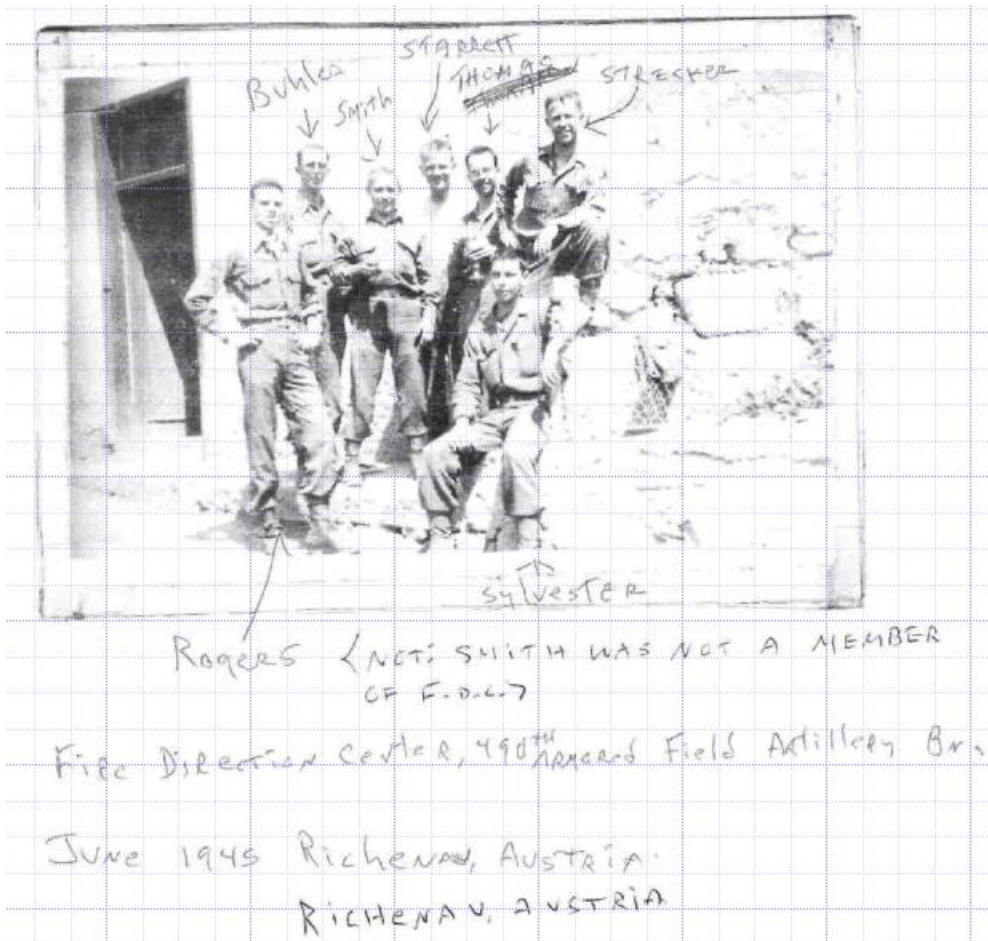 STARRETT
Buhles
THOMAS
STRECKER
Smith
Sylvester
Rogers (NOT: SMITH WAS NOT A MEMBER
OF F.D.C.)
Fire Direction Center, 490TH ARMORED Field Artillery Bn.
June 1945 Richenau, Austria.
RICHENAU, AUSTRIA